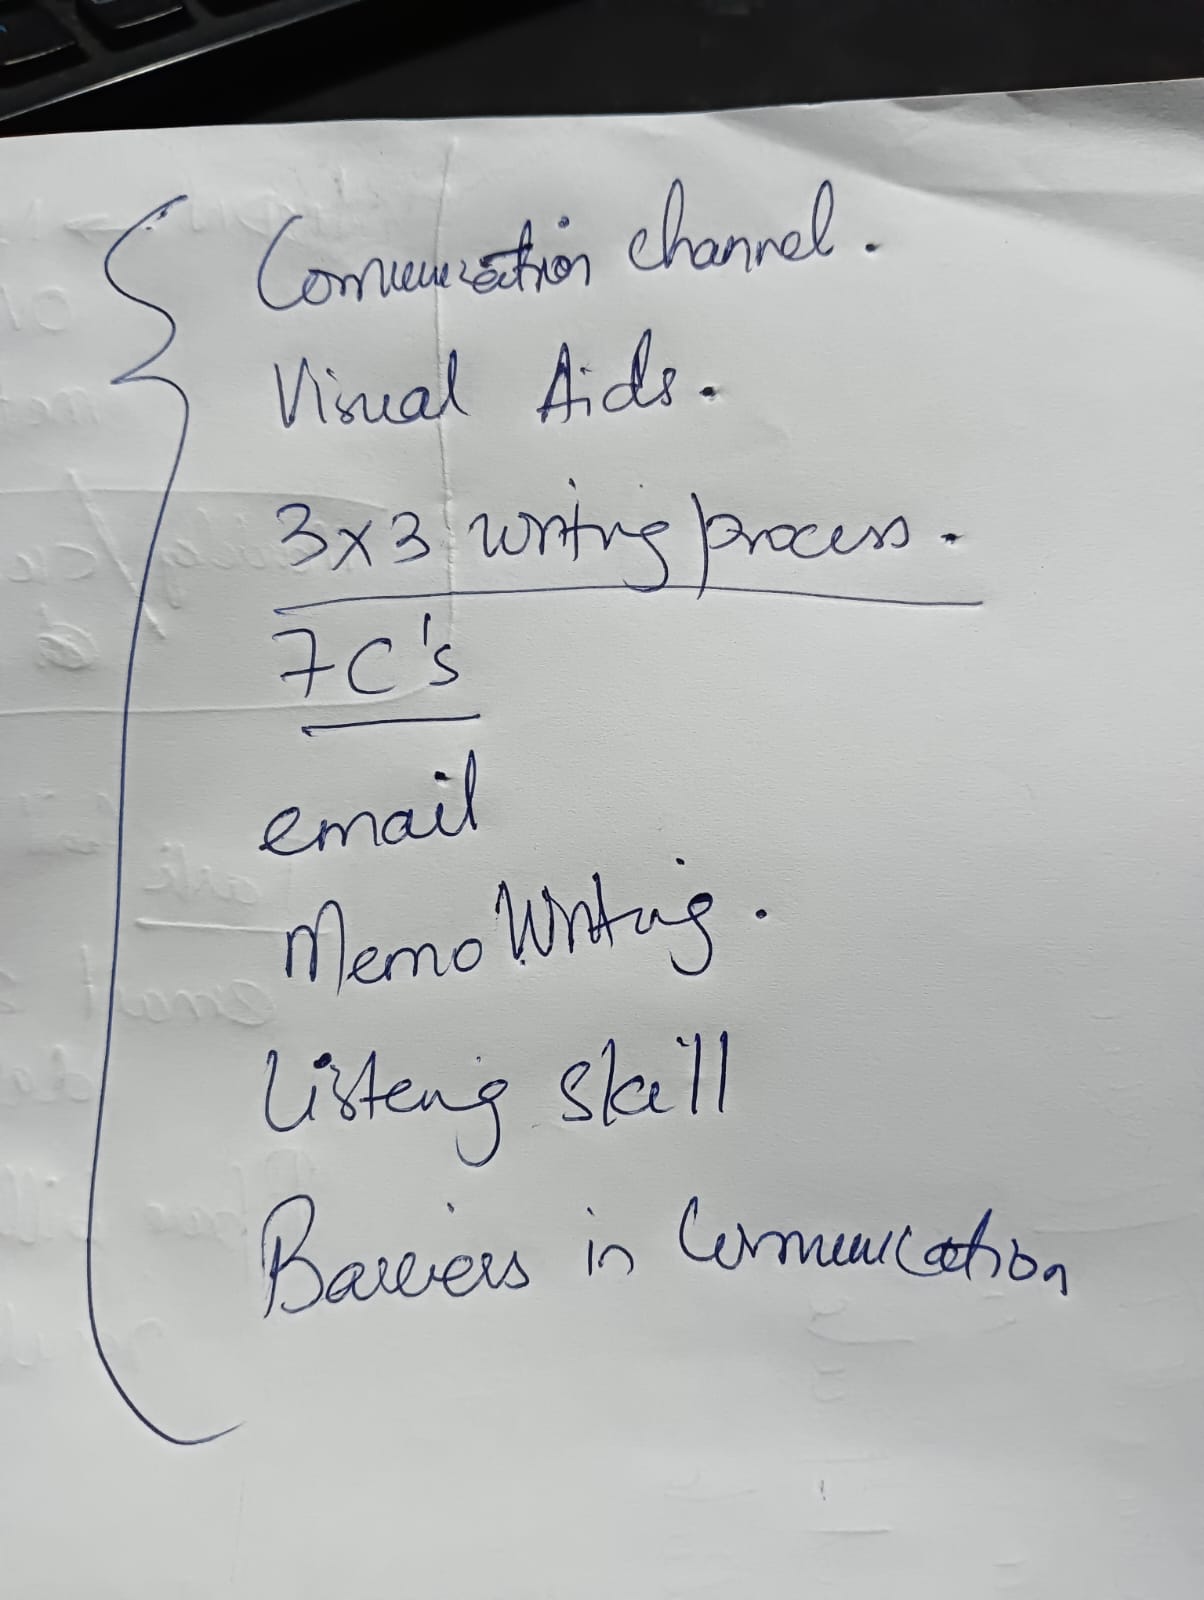 Communication channel.
Visual Aids.
3x3 writing process.
7C's
email
Memo Writing.
Listeng skill
Barriers in Communication